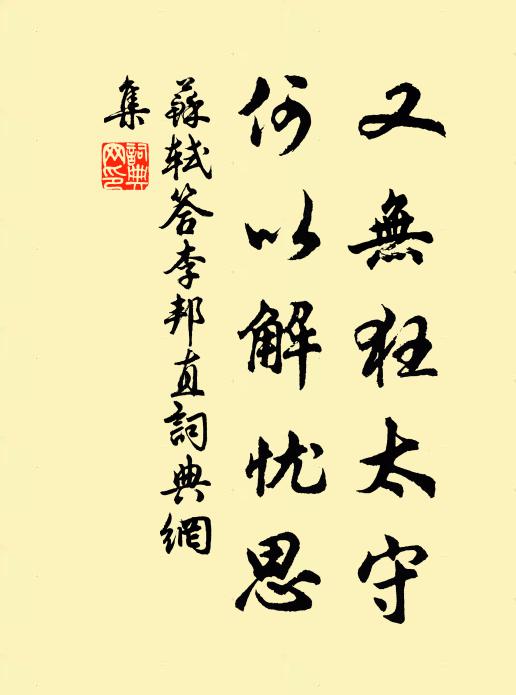 又無狂太守
何以解忧思
蘇軾答李邦直詞典網
集
詞典
网印